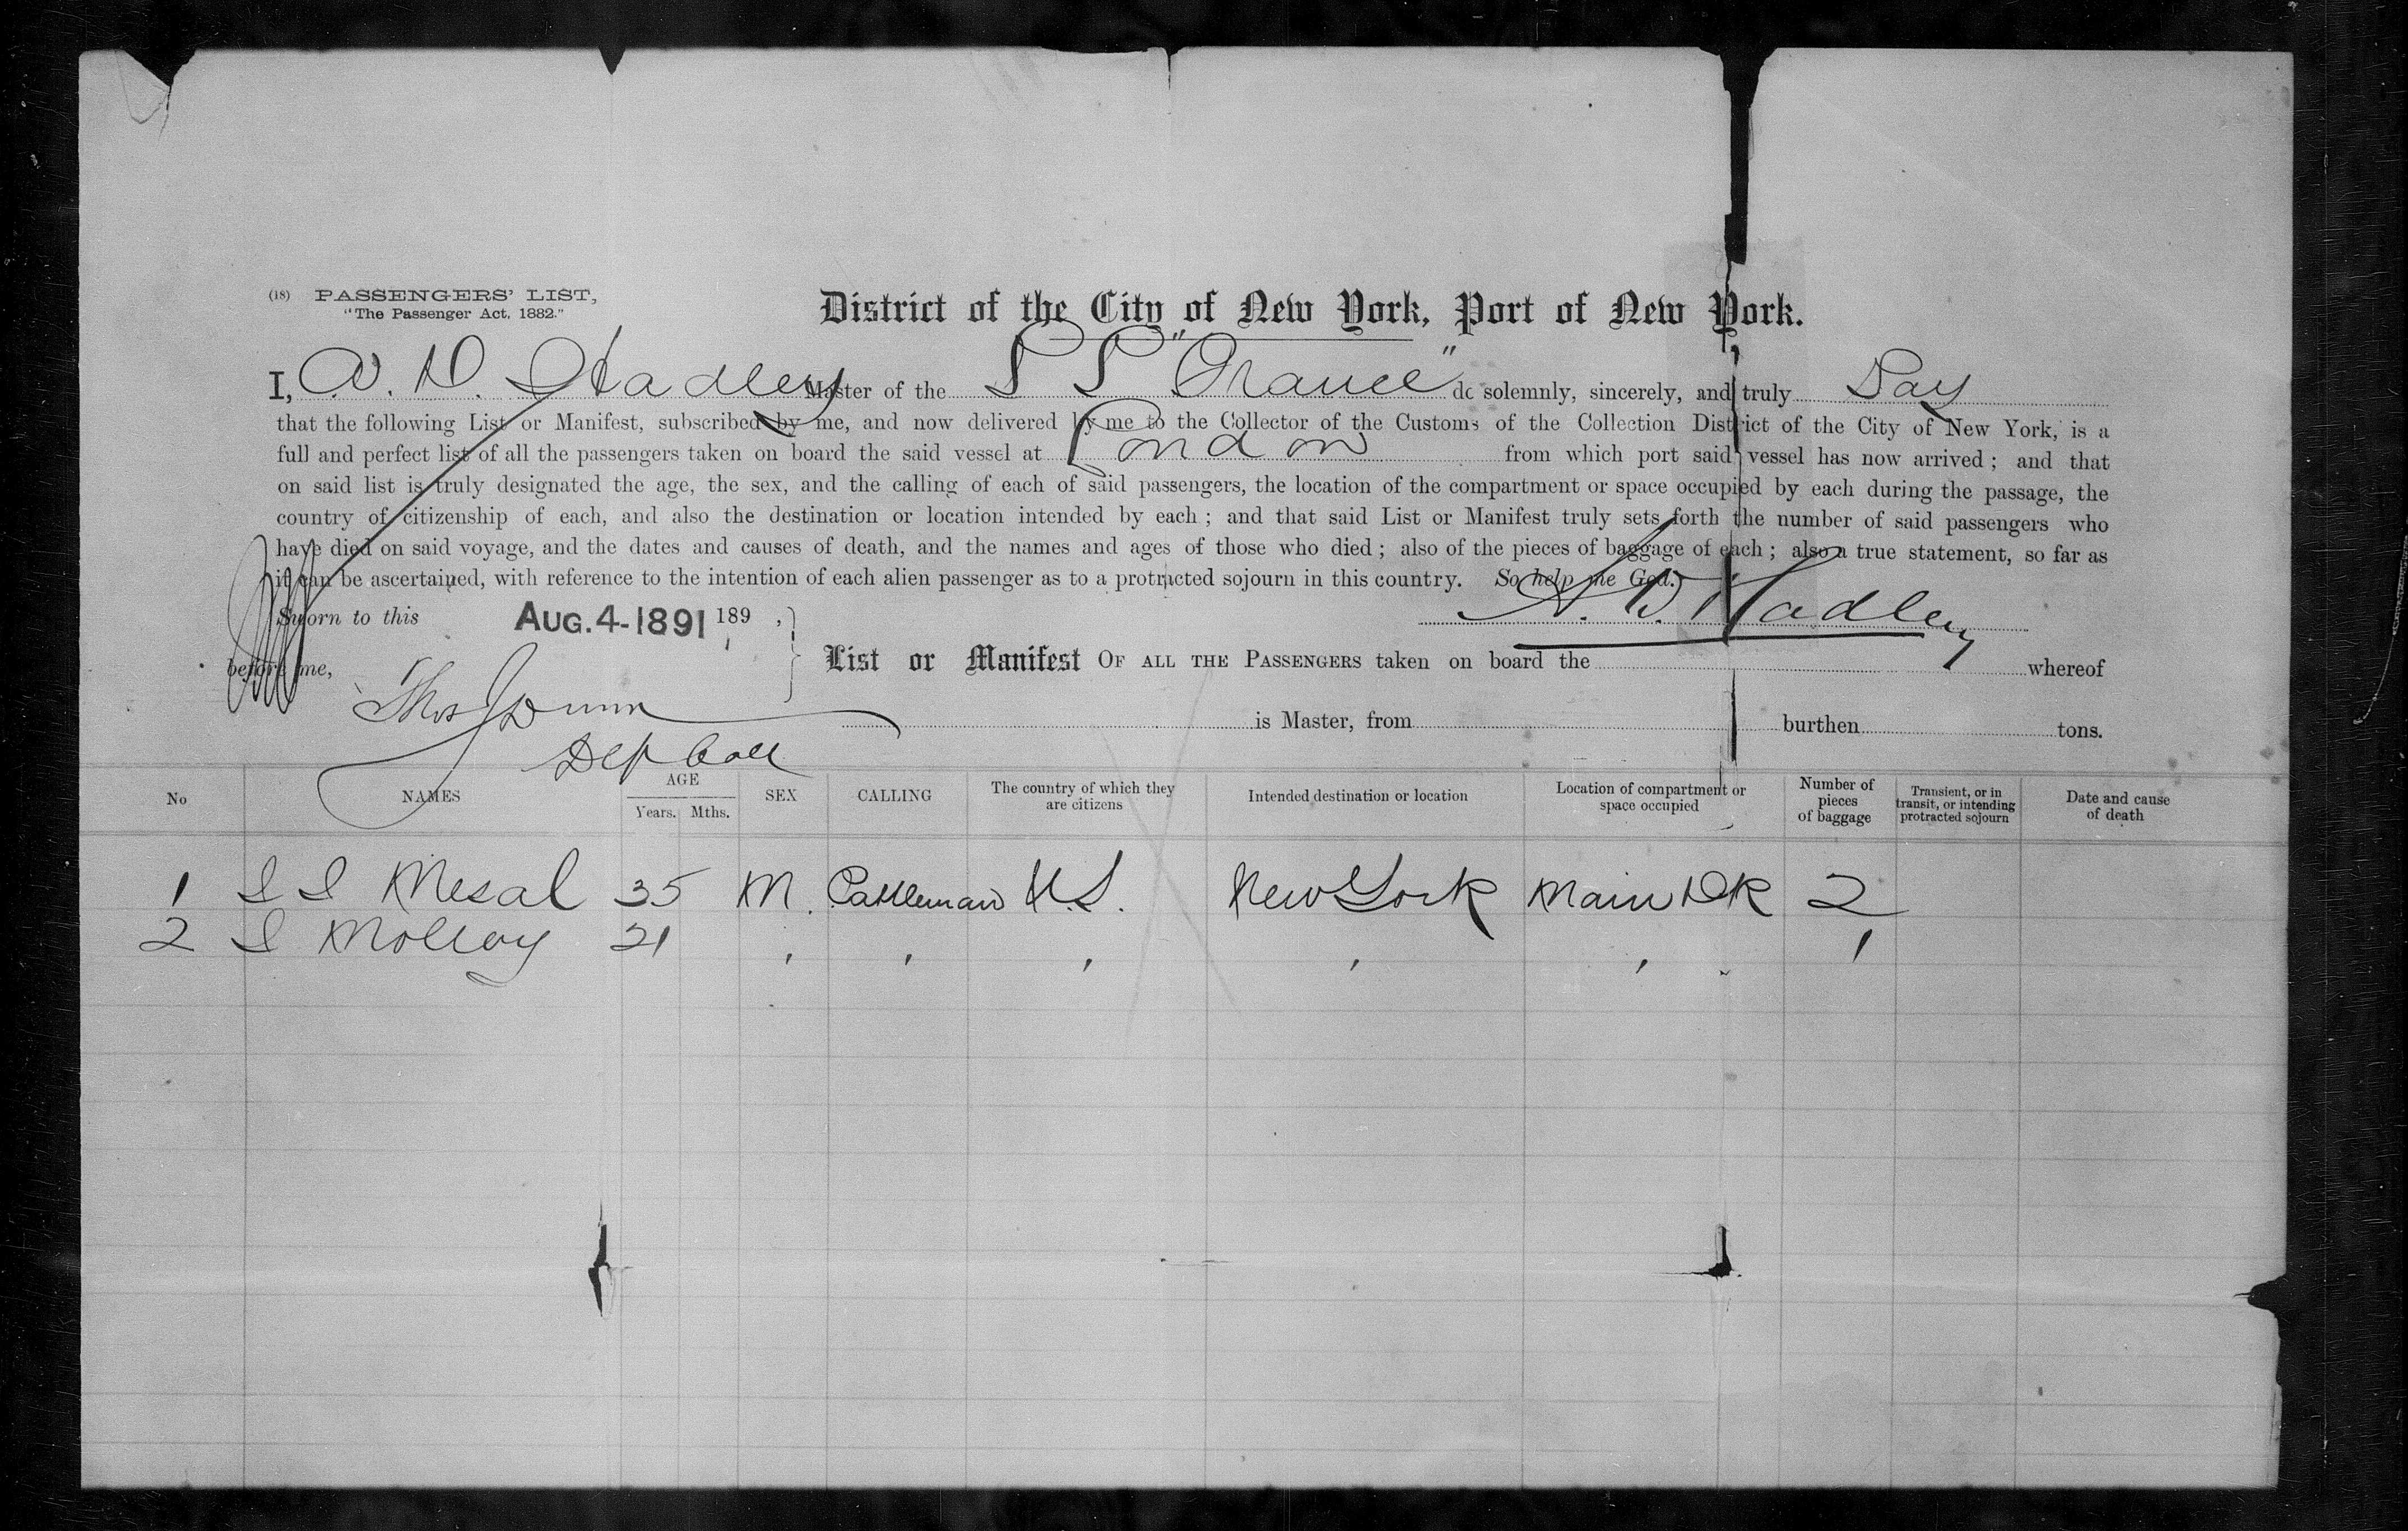 (18) PASSENGERS' LIST,
"The Passenger Act, 1882."
District of the City of New York, Port of New York.
I, A. D. Hadley Master of the S S "France" do solemnly, sincerely, and truly Say
that the following List or Manifest, subscribed by me, and now delivered by me to the Collector of the Customs of the Collection District of the City of New York, is a
full and perfect list of all the passengers taken on board the said vessel at London from which port said vessel has now arrived; and that
on said list is truly designated the age, the sex, and the calling of each of said passengers, the location of the compartment or space occupied by each during the passage, the
country of citizenship of each, and also the destination or location intended by each; and that said List or Manifest truly sets forth the number of said passengers who
have died on said voyage, and the dates and causes of death, and the names and ages of those who died; also of the pieces of baggage of each; also a true statement, so far as
it can be ascertained, with reference to the intention of each alien passenger as to a protracted sojourn in this country. So help me God.
A. D. Hadley
Sworn to this AUG. 4-1891 189 ,
before me,
Thos J Dunn
Dep Coll
List or Manifest OF ALL THE PASSENGERS taken on board the whereof
is Master, from burthen tons.
No NAMES AGE Years. Mths. SEX CALLING The country of which they are citizens Intended destination or location Location of compartment or space occupied Number of pieces of baggage Transient, or in transit, or intending protracted sojourn Date and cause of death
1 Mesal 35 M. Cattleman U.S. New York Main Dk 2
2 Molloy 21 " " " " " 1